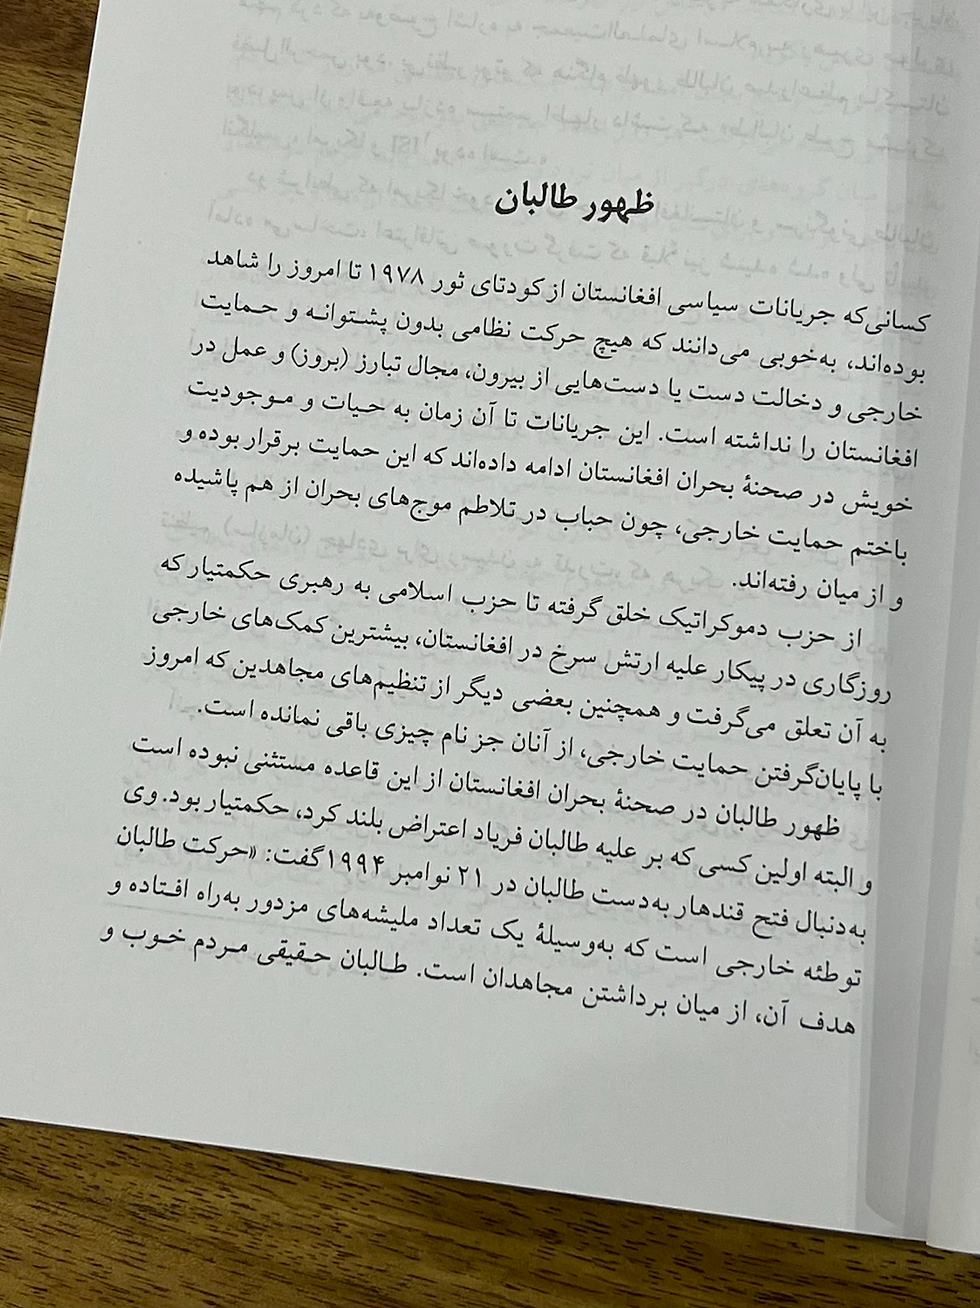 ظهور طالبان
کسانی‌که جریانات سیاسی افغانستان از کودتای ثور ۱۹۷۸ تا امروز را شاهد
بوده‌اند، به‌خوبی می‌دانند که هیچ حرکت نظامی بدون پشتوانه و حمایت
خارجی و دخالت دست یا دست‌هایی از بیرون، مجال تبارز (بروز) و عمل در
افغانستان را نداشته است. این جریانات تا آن زمان به حیات و موجودیت
خویش در صحنهٔ بحران افغانستان ادامه داده‌اند که این حمایت برقرار بوده و
باختم حمایت خارجی، چون حباب در تلاطم موج‌های بحران از هم پاشیده
و از میان رفته‌اند.
از حزب دموکراتیک خلق گرفته تا حزب اسلامی به رهبری حکمتیار که
روزگاری در پیکار علیه ارتش سرخ در افغانستان، بیشترین کمک‌های خارجی
به آن تعلق می‌گرفت و همچنین بعضی دیگر از تنظیم‌های مجاهدین که امروز
با پایان‌گرفتن حمایت خارجی، از آنان جز نام چیزی باقی نمانده است.
ظهور طالبان در صحنهٔ بحران افغانستان از این قاعده مستثنی نبوده است
و البته اولین کسی که بر علیه طالبان فریاد اعتراض بلند کرد، حکمتیار بود. وی
به‌دنبال فتح قندهار به‌دست طالبان در ۲۱ نوامبر ۱۹۹۴ گفت: «حرکت طالبان
توطئه خارجی است که به‌وسیلهٔ یک تعداد ملیشه‌های مزدور به‌راه افتاده و
هدف آن، از میان برداشتن مجاهدان است. طالبان حقیقی مردم خوب و